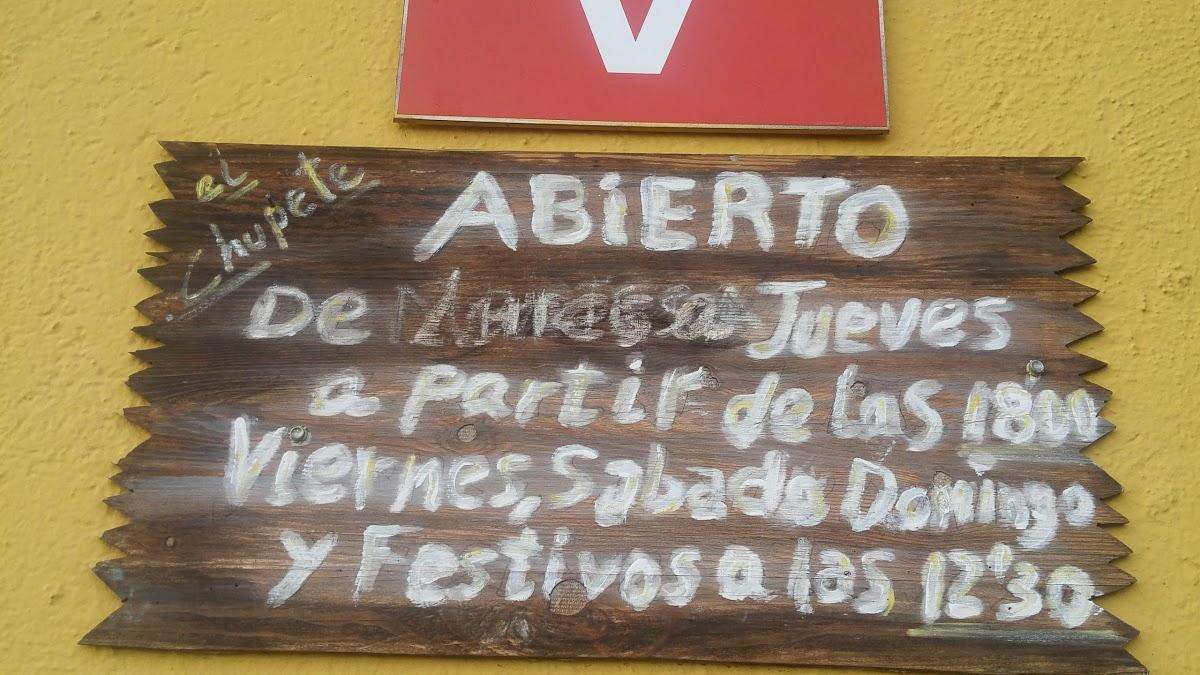 V
el
Chupete
ABiERTO
De Jueves
a partir de las 1800
Viernes, Sabado Domingo
y Festivos a las 12'30